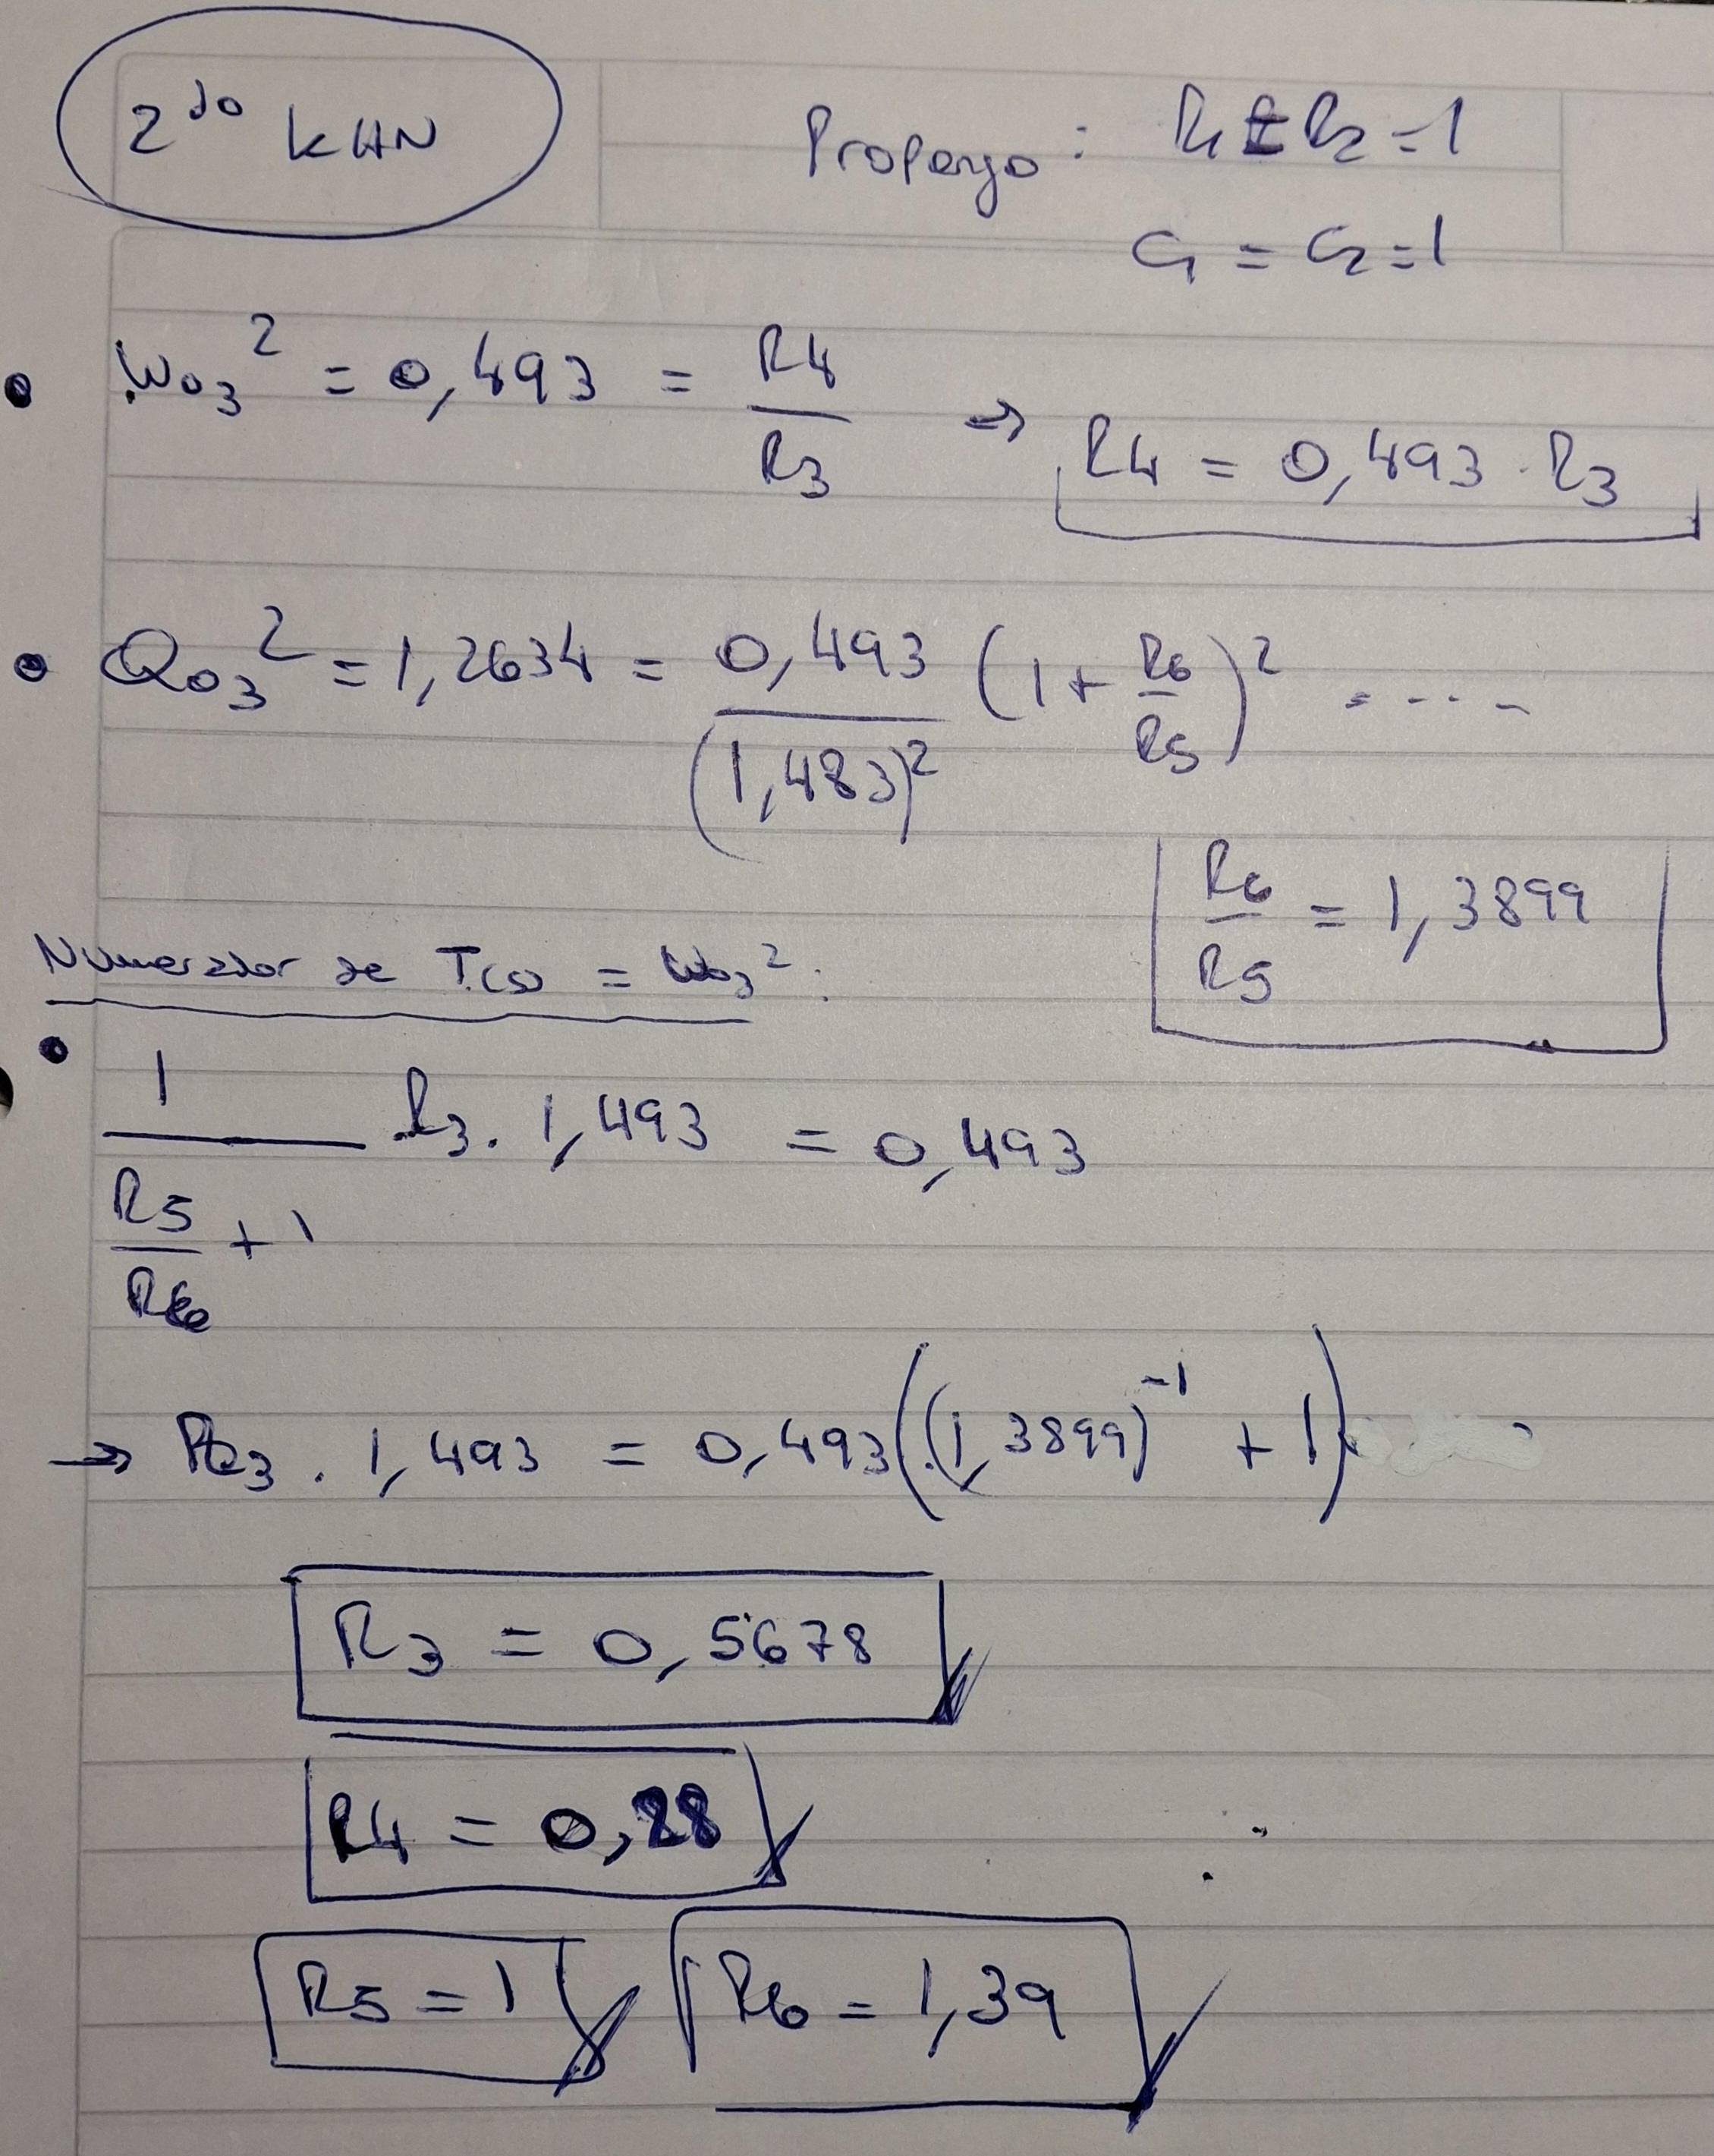 2do KHN
Propongo: R1 = R2 = 1
C1 = C2 = 1
• Wo3² = 0,493 = R4/R3 => R4 = 0,493 · R3
• Qo3² = 1,2634 = 0,493/(1,483)² (1 + R6/R5)² = ....
R6/R5 = 1,3899
Numerador de T(s) = Wo3²:
• 1/(R5/R6 + 1) R3 · 1,493 = 0,493
→ R3 · 1,493 = 0,493((1,3899)⁻¹ + 1)
R3 = 0,5678
R4 = 0,28
R5 = 1 R6 = 1,39